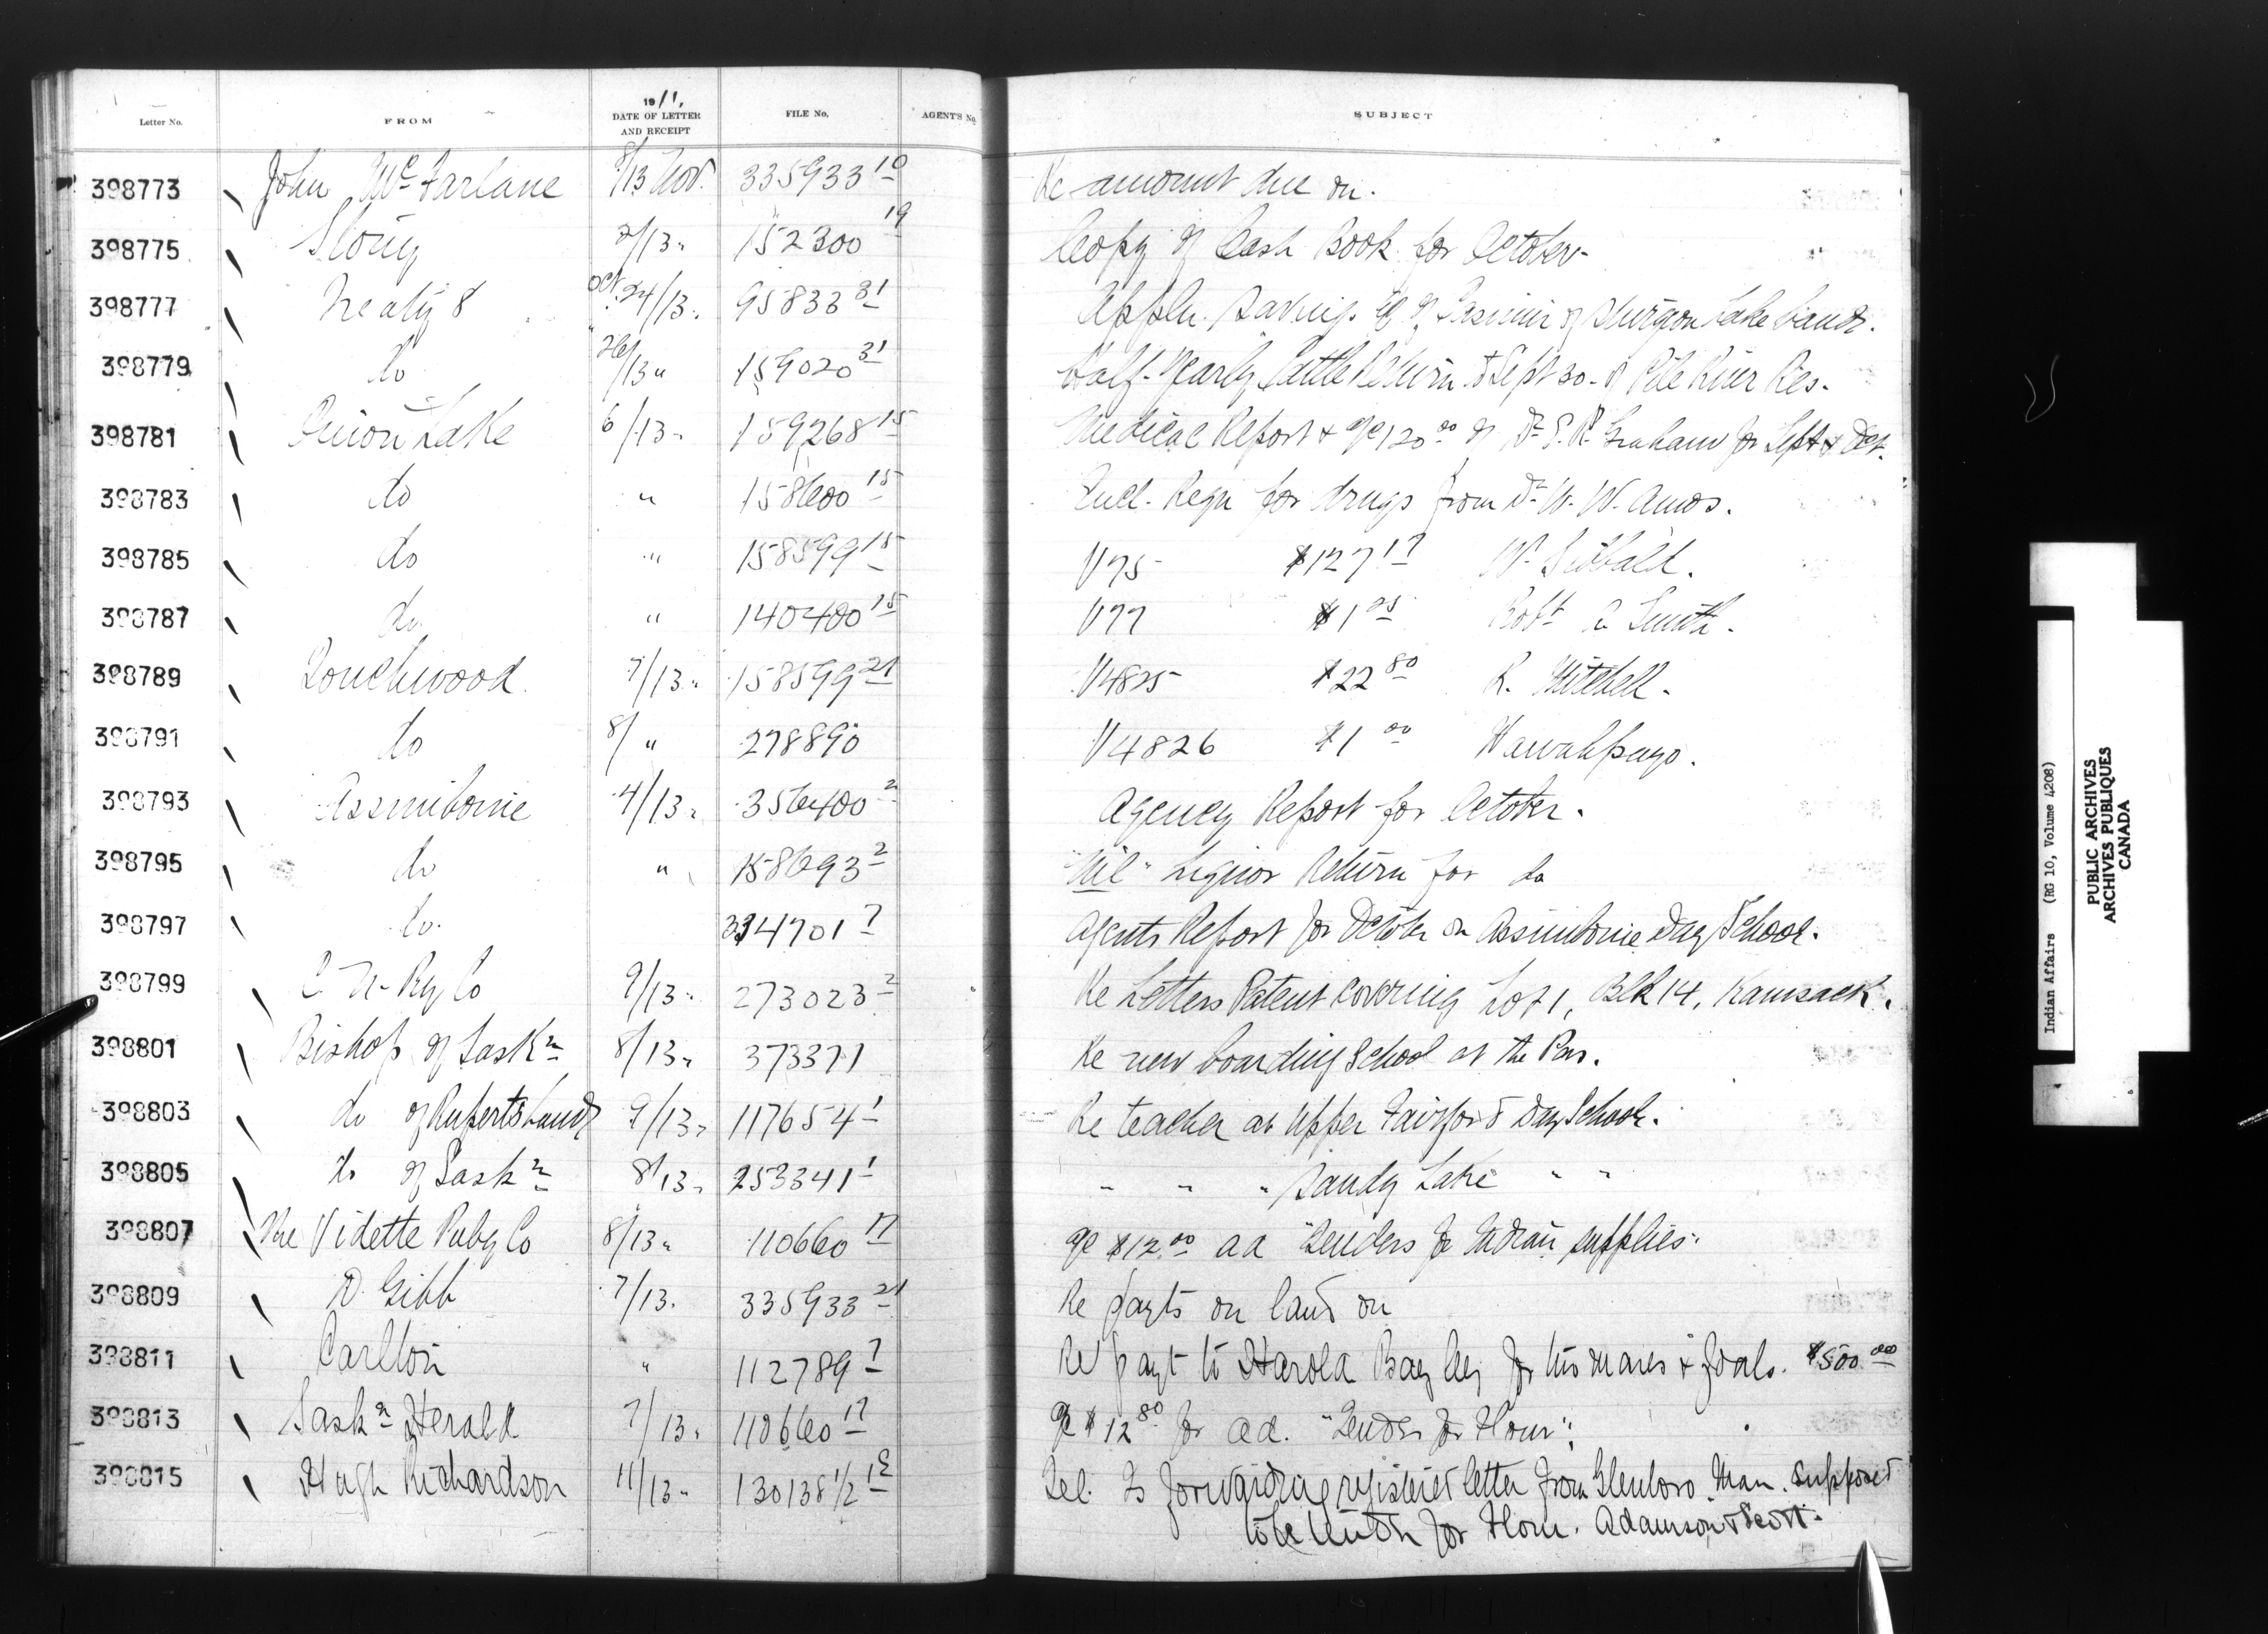 Letter No. FROM 1911, DATE OF LETTER AND RECEIPT FILE No. AGENT'S No. SUBJECT
398773 John McFarlane 8/13 Nov. 335933 10 Re amount due on.
398775 Stony 2/13 " 152300 19 Copy of Cash Book for October.
398777 Treaty 8 Oct. 24/13 " 95833 31 Appln. of Sturgeon Lake band.
398779 do 26/13 " 159020 31 Half-Yearly Cattle Return to Sept 30 - of Res.
398781 Onion Lake 6/13 " 159268 15 Medical Report + a/c 120 00 of Dr. Graham for Sept & Oct.
398783 do " 158600 15 Encl. Reqn for drugs from Dr. W. W. Amos.
398785 do " 158599 15 V75 $127 17 W. Sibbald.
398787 do " 140400 15 V77 $1 05 Robt a Smith.
398789 Touchwood 7/13 " 158599 21 V4825 $22 80 R. Mitchell.
398791 do 8/ " 278890 V4826 $1 00
398793 Assiniboine 4/13 " 356400 2 Agency Report for October.
398795 do " 158693 2 "Nil" Liquor Return for do
398797 do. 334701 7 Agents Report for October on Assiniboine Day School.
398799 C. N. Ry Co 9/13 " 273023 2 Re Letters Patent covering Lot 1, Blk 14, Kamsack.
398801 Bishop of Saskn 8/13 " 373371 Re new boarding School at the Pas.
398803 do of Ruperts Land 9/13 " 117654 1 Re teacher at Upper Fairford Day School.
398805 do of Saskn 8/13 " 253341 1 " " " Sandy Lake " "
398807 The Vidette Pubg Co 8/13 " 110660 17 a/c $12.00 ad "Tenders for Indian supplies."
398809 D. Gibb 7/13. 335933 21 Re payts on land on
398811 Carlton " 112789 7 Re payt to Harold for his mares & foals. $500 00
398813 Saskn Herald 7/13 " 110660 17 a/c $12 80 for ad. "Tender for Flour".
398815 Hugh Richardson 11/13 " 130138 1/2 Tel. Is forwarding registered letter from Glenboro Man. supposed
to be tender for Flour. Adamson & Scott.
Indian Affairs (RG 10, Volume 4208)
PUBLIC ARCHIVES
ARCHIVES PUBLIQUES
CANADA